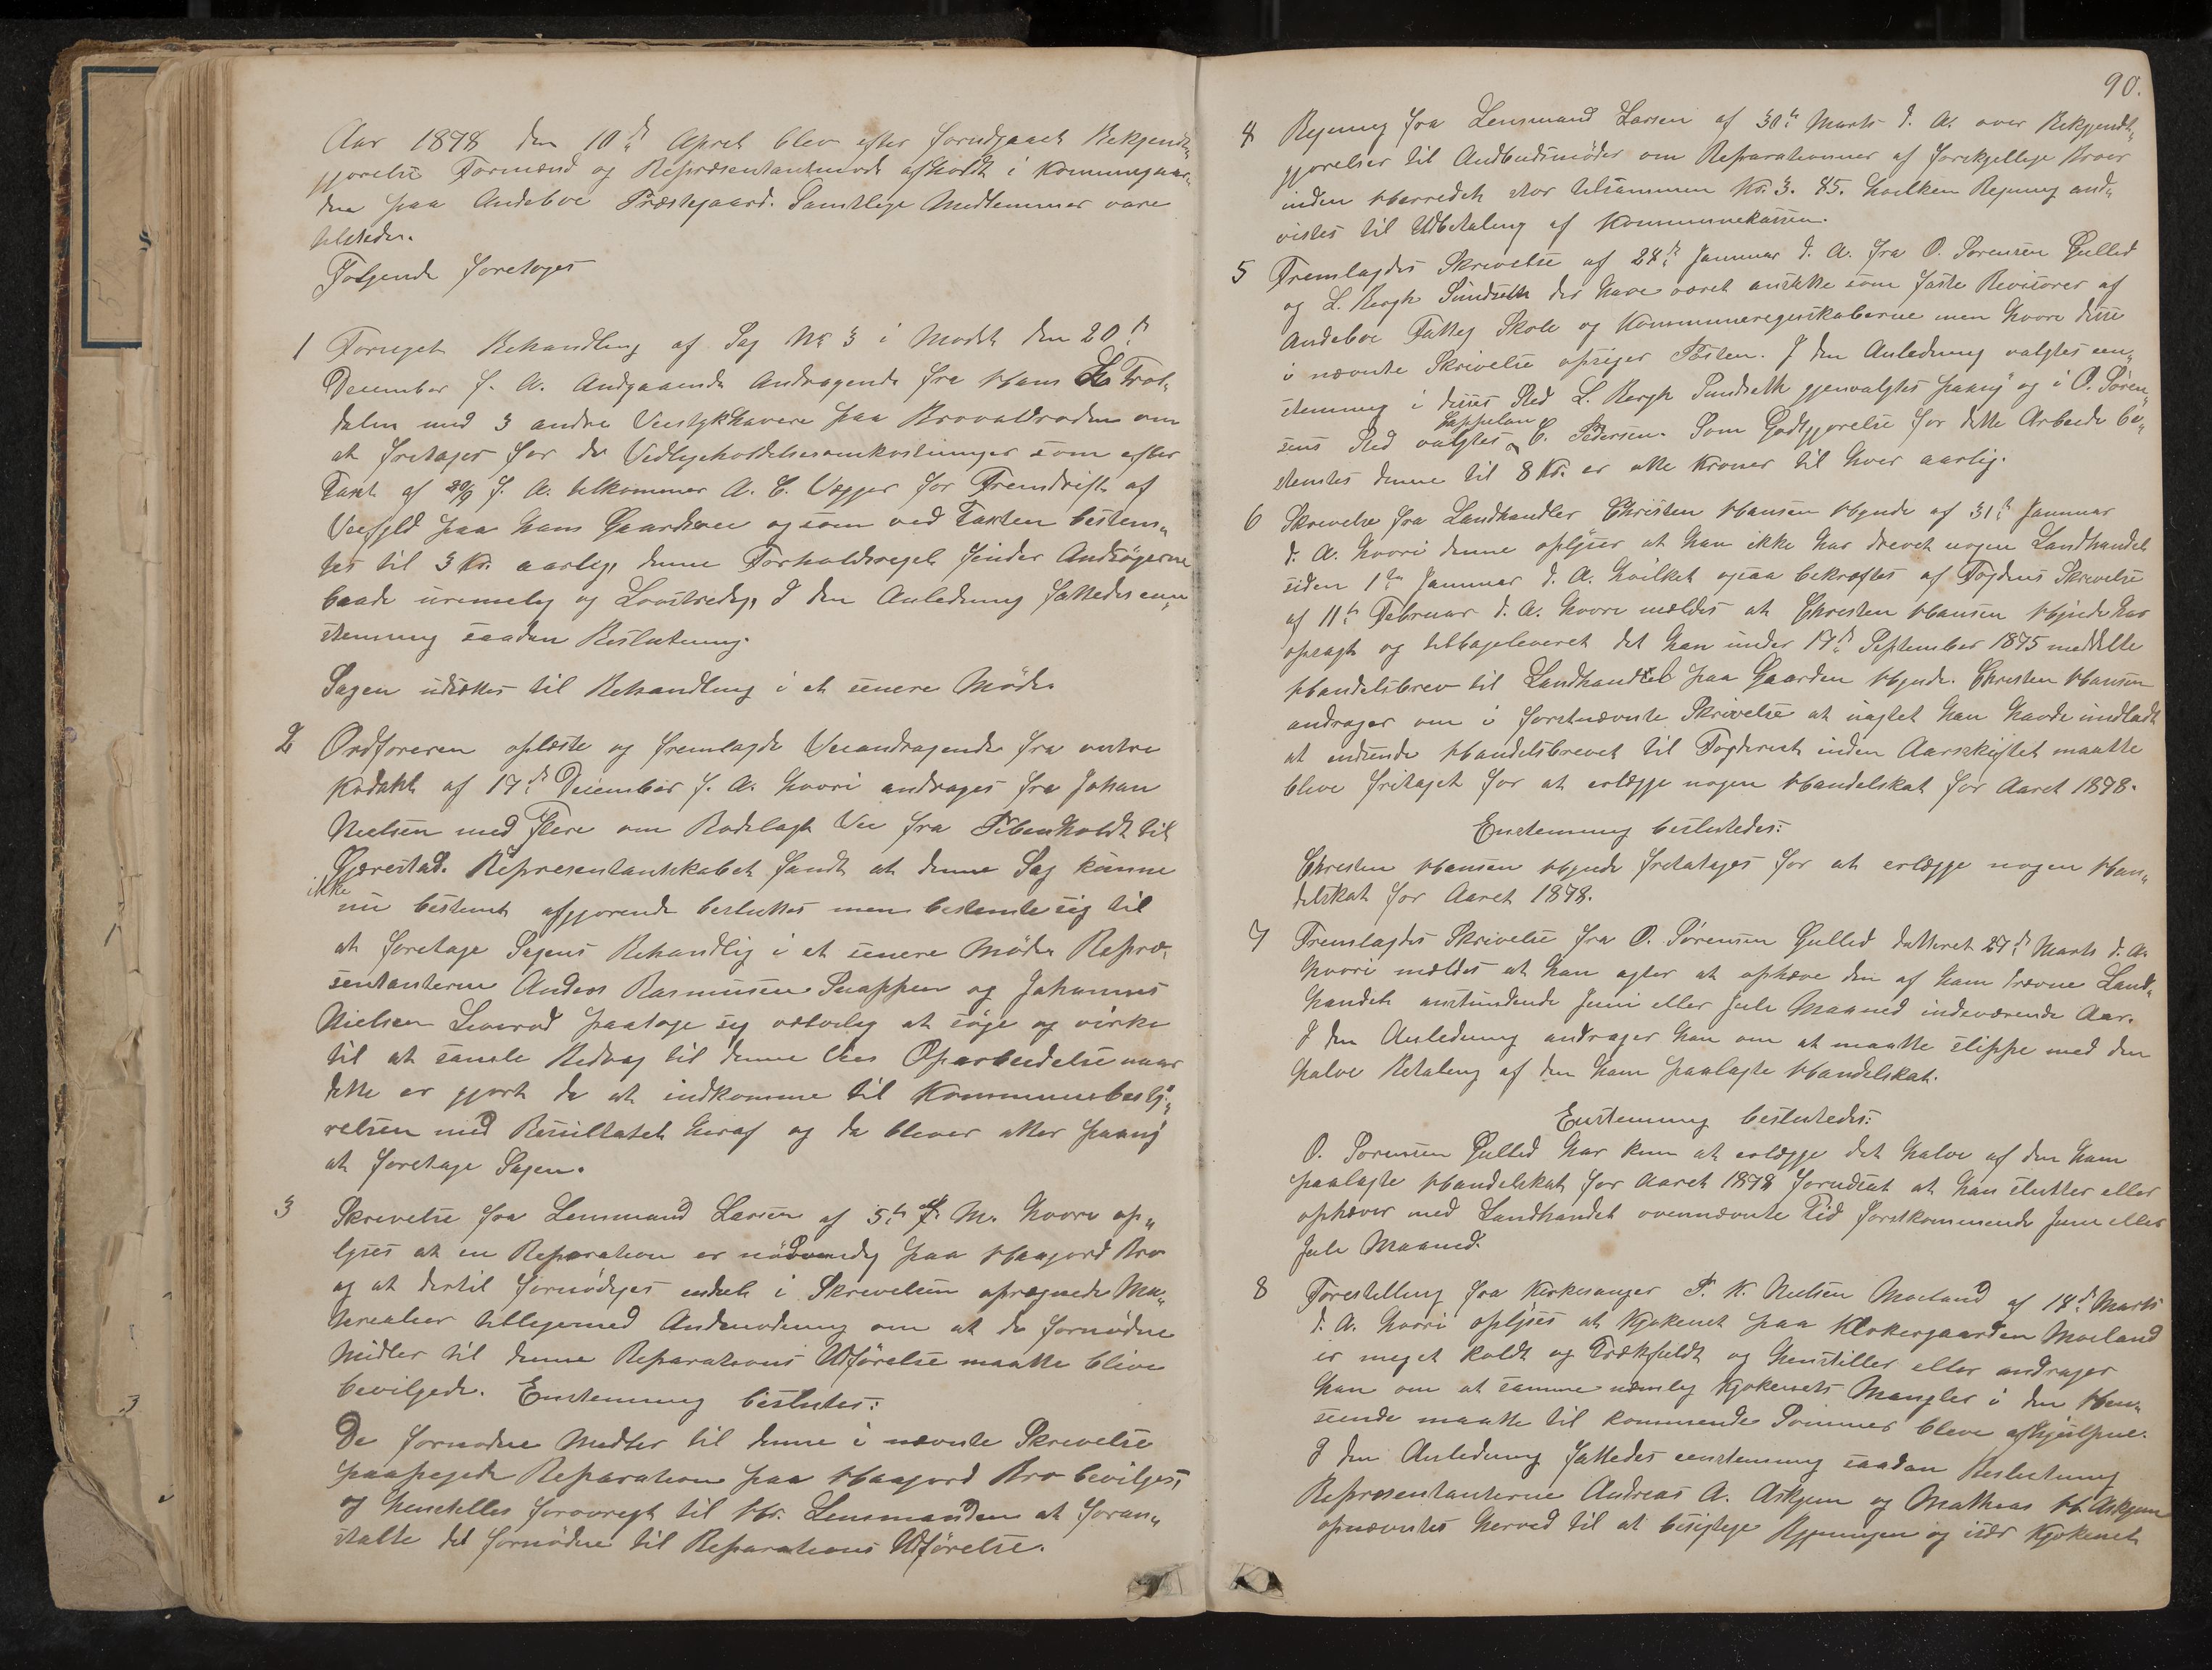 Aar 1878 den 10de April blev efter forudgaaet Bekjendt„
gjørelse Formænd og Repræsentantmøde afholdt i Kommunegaar„
den paa Andeboe Præstegaard. Samtlige Medlemmer vare
tilstede.
Følgende foretoges
1 Fornyet Behandling af Sag No 3 i Mødet den 20de
December f. A. Andgaaende Andragende fra Hans
dalen med 3 andre Veistykhavere paa om
at fritages for de Vedligeholdelsesomkostninger som efter
Taxt af f. A. tilkommer A. C. for Fremdrift af
Veifyld paa hans Gaards vei og som ved Taxten bestem„
tes til 3 Kr. aarlig, denne Forholdsregel finder Andsögerne
baade urimelig og Lovstredig, I den Anledning fattedes een„
stemmig saadan Beslutning.
Sagen udsættes til Behandling i et senere Møde.
2 Ordføreren oplæste og fremlagde Veiandragende fra vestre
Kodahl af 17de December f. A. hvori andrages fra Johan
Nielsen med Flere om Rodelagt Vei fra til
Gjerestad. Representantskabet fandt at denne Sag kunne
ikke
nu bestemt afgjørende besluttes men bestemte sig til
at foretage Sagens Behandlig i et senere Møde Repræ„
sentanterne Anders Rasmussen Snappen og Johannes
Nielsen paatoge sig velvelig at söge og virke
til at samle Bedrag til denne Veis Oparbeidelse naar
dette er gjort da at indkomme til Kommunebesty„
relsen med Resultatet heraf og da bliver atter paany
at foretage Sagen.
3 Skrivelse fra Lensmand Larsen af 5te M. hvori op„
lyses at en Reparation er nödvendig paa Haagord Bro
og at dertil fornødiges endeel i Skrivelsen opregnede Ma„
terialier tilligemed Andmodning om at de fornødne
Midler til denne Reparations Udförelse maatte blive
bevilgede. Enstemmig besluttes:
De fornødne Midler til denne i nævnte Skrivelse
paapegede Reparation paa Haagord Bro bevilges,
og henstilles forøvrigt til Hr. Lensmanden at foran„
stalte det fornødne til Reparations Udförelse.
90.
4 Regning fra Lensmand Larsen af 30te Marts d. A. over Bekjendt„
gjørelser til Andbudsmøder om Reparationer af forskjellige Broer
inden Herredet stor tilsammen Kr. 3. 85. hvilken Regning and„
vistes til Udbetaling af Kommunekassen.
5 Fremlagdes Skrivelse af 28de Januar d. A. fra O. Sørensen Gulled
og L. Bergh Sundseth der have været ansatte som faste Revisorer af
Andeboe Fattig Skole og Kommuneregnskaberne men hvori disse
i nævnte Skrivelse opsiger Posten. I den Anledning valgtes een„
stemmig i disses Sted L. Bergh Sundseth gjenvalgtes paany og i O. Sören„
Kappelan
sens Sted valgtes C. Pedersen. Som Godtgjørelse for dette Arbeide be„
stemtes denne til 8 Kr. er otte Kroner til hver aarlig.
6 Skrivelse fra Landhandler Christen Hansen Hynde af 31te Januar
d. A. hvori denne oplyser at han ikke har drevet nogen Landhandel
siden 1ste Januar d. A. hvilket ogsaa bekræftes af Fogdens Skrivelse
af 11te Februar d. A. hvori meldes at Christen Hansen Hynde har
opsagt og tilbageleveret det ham under 17de September 1875 meddelte
Handelsbrev til Landhandel paa Gaarden Hynde. Christen Hansen
andrager om i førstnævnte Skrivelse at uagtet han havde undladt
at indsende Handelsbrevet til Fogderiet inden Aarsskiftet maatte
blive fritaget for at erlægge nogen Handelskat for Aaret 1878.
Enstemmig besluttedes:
Christen Hansen Hynde fritatages for at erlægge nogen Han„
delskat for Aaret 1878.
7 Fremlagdes Skrivelse fra O. Sørensen Gulled datteret 27de Marts d. A.
hvori meldes at han agter at ophæve den af ham drevne Land„
handel anstundende Juni eller Juli Maaned indeværende Aar.
I den Anledning andrager han om at maatte slippe med den
halve Betaling af den ham paalagte Handelskat.
Enstemmig besluttedes:
O. Sørensen Gulled har kun at erlægge det halve af den ham
paalagte Handelskat for Aaret 1878 forudsat at han slutter eller
ophæver med Landhandel ovennævnte Tid førstkommende Juni eller
Juli Maaned.
8 Forestilling fra Kirkesanger P. K. Nielsen Moeland af 18de Marts
d. A. hvori oplyses at Kjøkenet paa Klokergaarden Moeland
er meget koldt og Trækfuldt og henstiller eller andrager
han om at samme nemlig Kjøkenets Mangler i den Hen„
seende maatte til kommende Sommer blive afhjulpne.
I den Anledning fattedes eenstemmig saadan Beslutning
Representanterne Andreas A. Askjem og Mathias H. Askjem
opnævntes herved til at besigtige Bygningen og især Kjøkenet